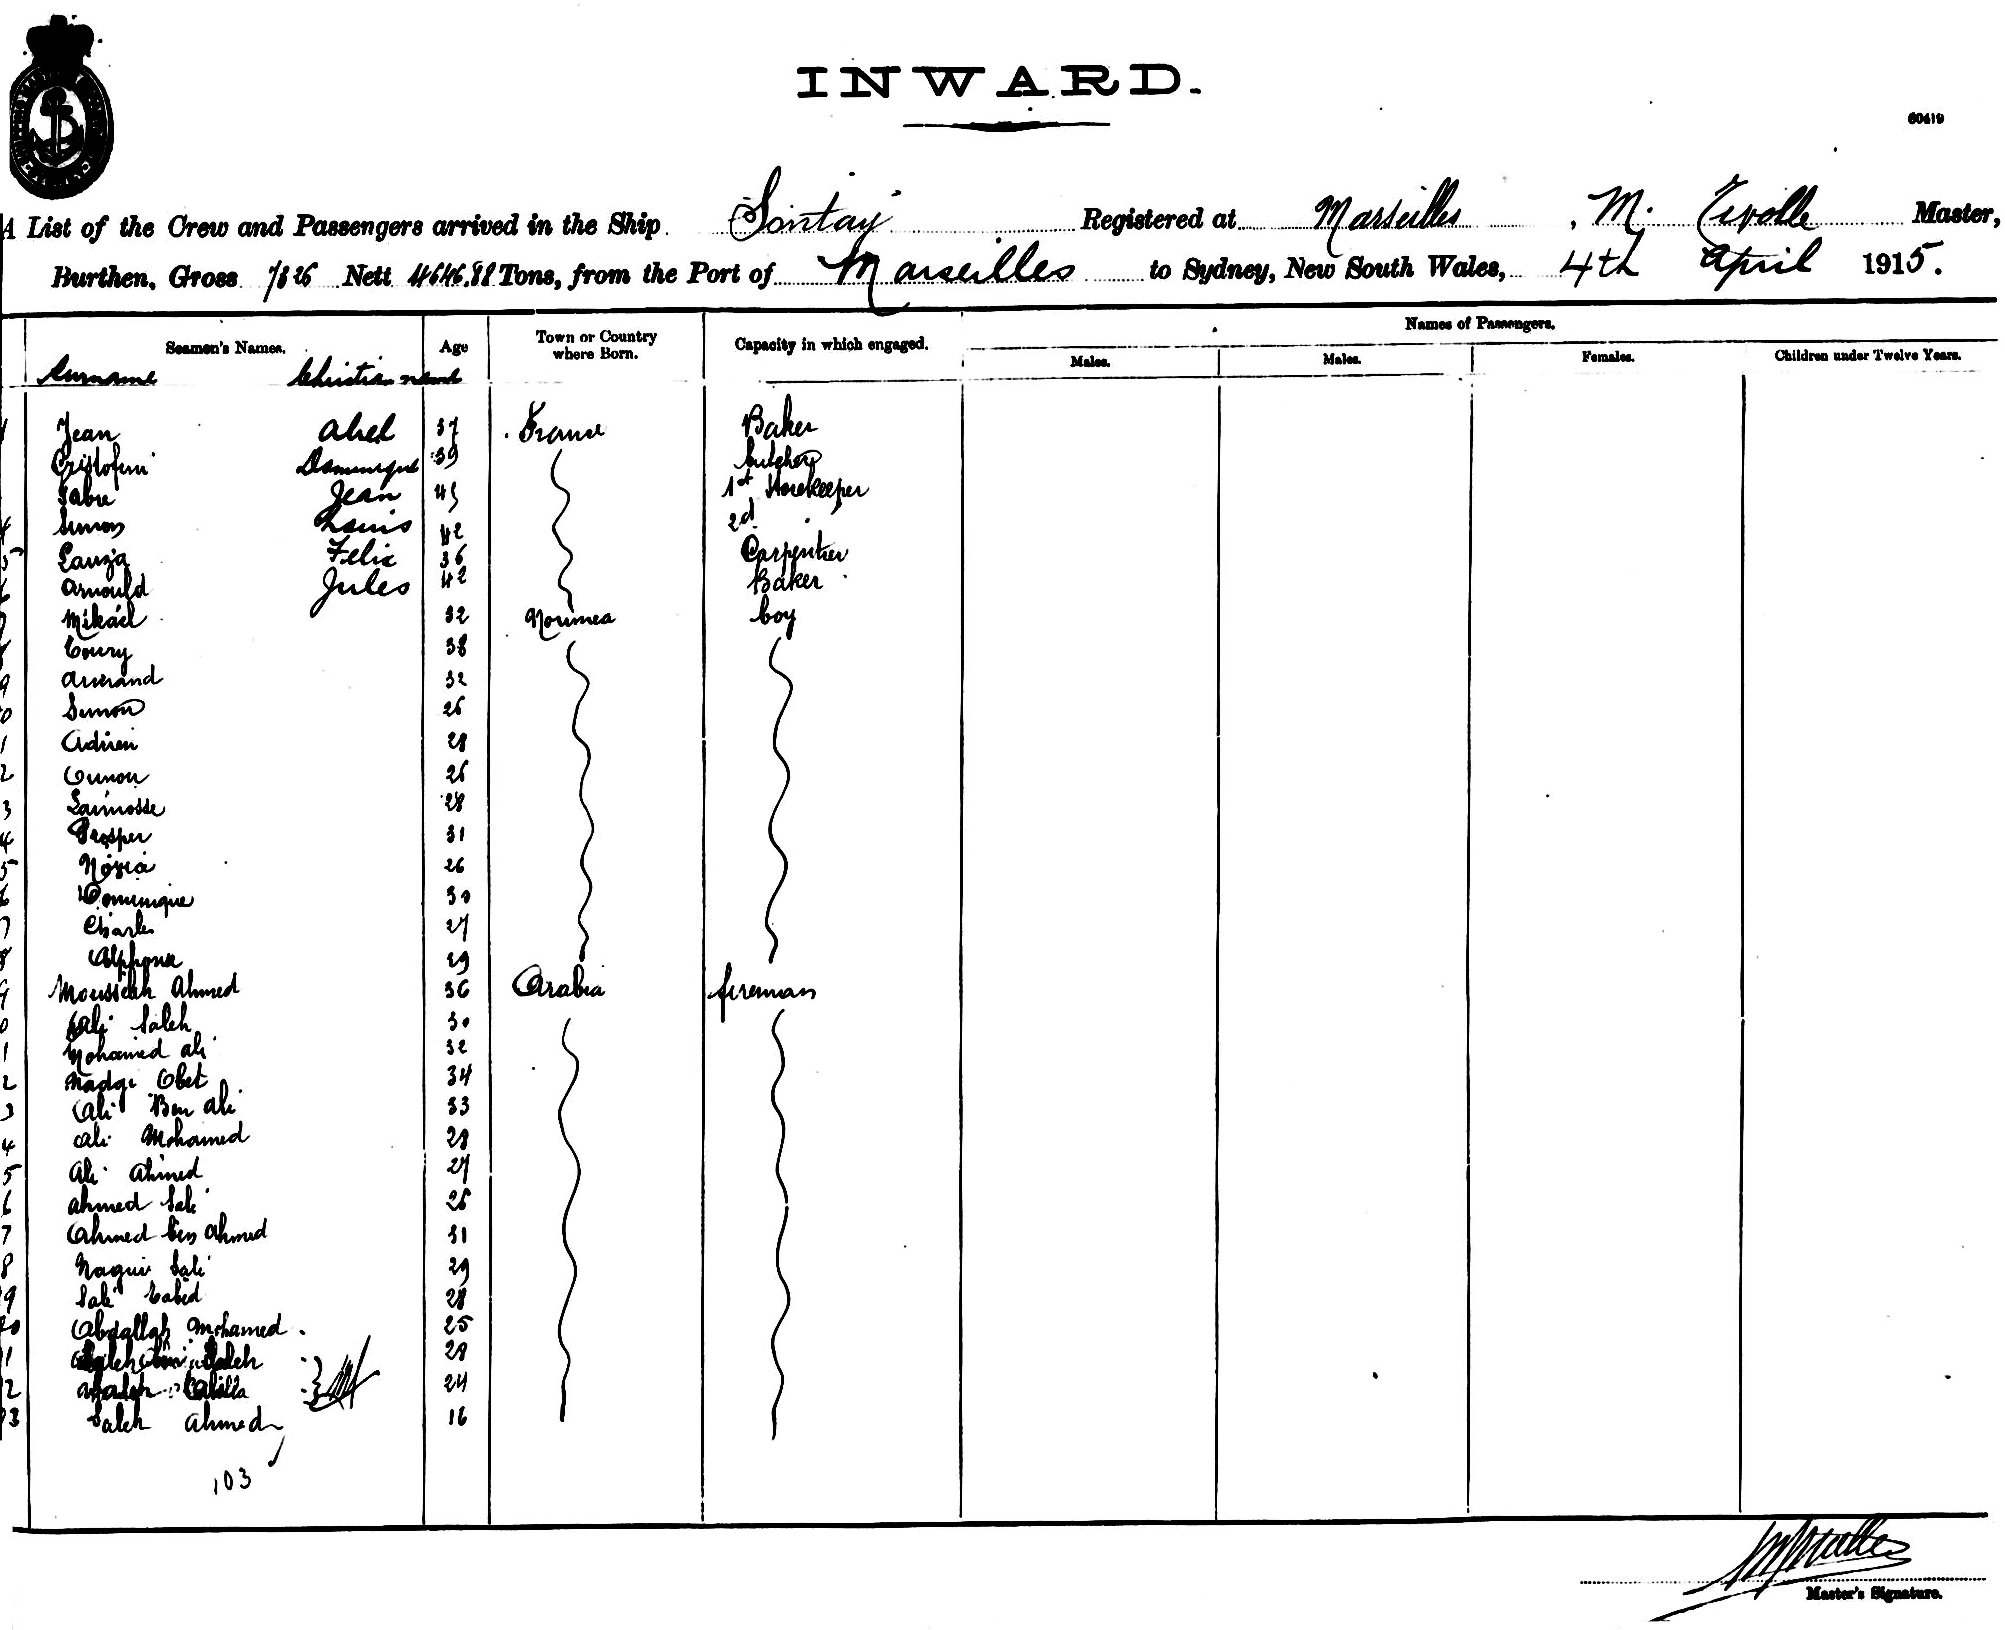 INWARD.
60419
A List of the Crew and Passengers arrived in the Ship Sontay Registered at Marseilles, M. Master,
Burthen, Gross 7826 Nett 4646.88 Tons, from the Port of Marseilles to Sydney, New South Wales, 4th April 1915.
Seamen's Names. Age Town or Country where Born. Capacity in which engaged. Names of Passengers.
Surname Christian name Males. Males. Females. Children under Twelve Years.
Jean Abel 37 France Baker
Cristofini Dominique 39 butcher
Fabre Jean 45 1st Storekeeper
4 Simon Louis 42 2d
5 Lauza Felix 36 Carpentier
6 Arnould Jules 42 Baker
7 Mikaël 32 Noumea boy
8 Coury 38
9 Armand 32
0 Simon 26
1 Adrien 28
2 26
3 28
4 Prosper 31
5 26
6 Dominique 30
7 Charles 27
8 Alphonse 29
9 Ahmed 36 Arabia fireman
0 Ali Saleh 30
1 Mohamed Ali 32
2 Nadgi Obet 34
3 Ali Ben Ali 33
4 Ali Mohamed 28
5 Ali Ahmed 27
6 Ahmed Sali 26
7 Ahmed ben Ahmed 31
8 Nagui Sali 29
9 Sali Eabed 28
0 Abdallah Mohamed 25
1 Saleh 28
2 24
3 Saleh Ahmed 16
103
Master's Signature.